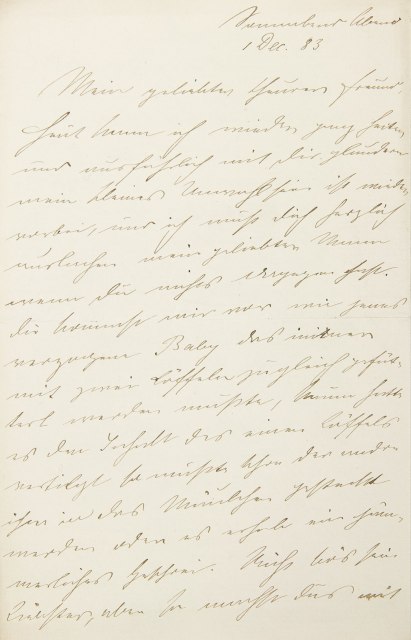 Sonnabend Abend
1 Dec. 83
Mein geliebter theurer Freund,
heut kann ich wieder ganz heiter
und ausführlich mit dir plaudern
mein kleines Unwohlsein ist wieder
vorbei, und ich muß dich herzlich
auslachen mein geliebter Mann
wenn du nichts dagegen hast.
du kommst mir vor wie jenes
verzogene Baby das immer
mit zwei Löffeln zugleich gefüt-
tert werden mußte, kaum hatte
es den Inhalt des einen Löffels
vertilgt so mußte schon der andre
ihm in das Mäulchen gesteckt
werden oder es erhob ein jäm-
merliches Geschrei. Nicht bös sein
Liebster, aber so machst du's mit